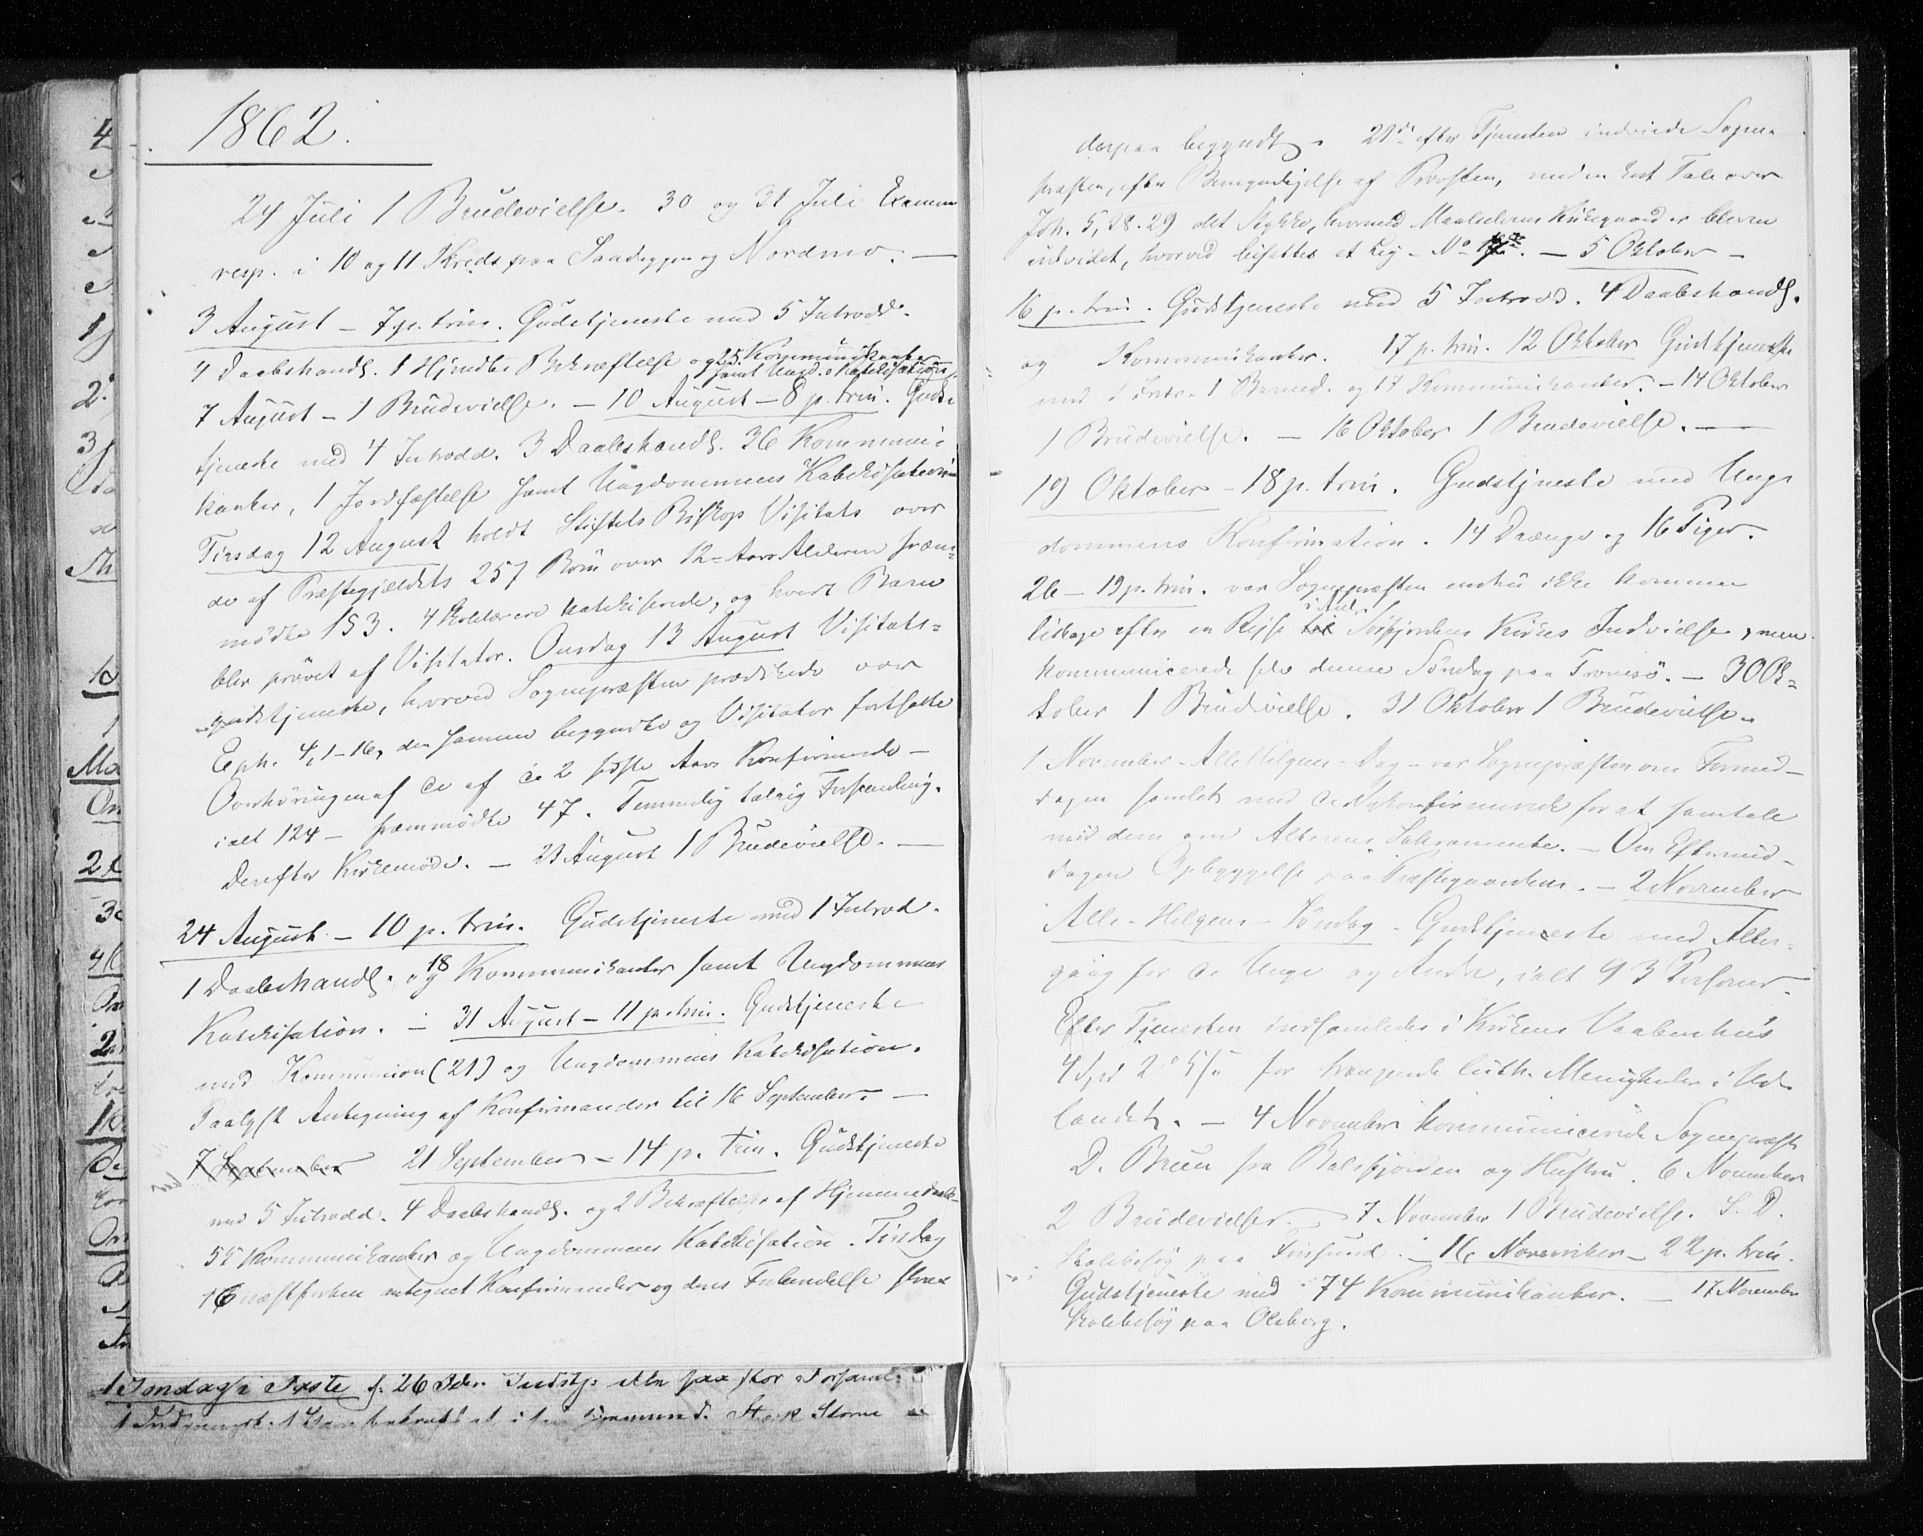 1862.
24 Juli 1 Brudevielse. 30 og 31 Juli Examen
resp. i 10 og 11 Kreds paa Sandeggen og Nordmo. —
3 August – 7 p. trin. Gudstjeneste med 5 Introdd.
4 Daabshandl. 1 Hjmdbs Bekræftelse og 25 Kommunikanter
samt Ungd. Katekisation.
7 August – 1 Brudevielse. – 10 August – 8 p. trin. Guds-
tjeneste med 4 Introdd. 3 Daabshandl. 36 Kommuni-
kanter, 1 Jordfæstelse samt Ungdommens Katekisation
Tirsdag 12 August holdt Stiftets Biskop Visitats over
de af Præstegjældets 257 Børn over 12-Aars Alderen frem-
mødte 153. 4 Skolelærere katekiserede, og hvert Barn
blev prøvet af Visitator. Onsdag 13 August Visitats-
gudstjeneste, hvorved Sognepræsten prædikede over
Eph. 4, 1–16, den samme begyndte og Visitator fortsatte
Overhøringen af de af de 2 sidste Aars Konfirmerede –
ialt 124 – fremmødte 47. Temmelig talrig Forsamling.
Derefter Kirkemøde. – 21 August 1 Brudevielse. —
24 August – 10 p. trin. Gudstjeneste med 1 Introd.
1 Daabshandl. og 18 Kommunikanter samt Ungdommens
Katekisation. – 31 August – 11 p. trin. Gudstjeneste
med Kommunion (21) og Ungdommens Katekisation.
Paalyst Antegning af Konfirmander til 16 September. —
7 September 21 September – 14 p. trin. Gudstjeneste
med 5 Introdd. 4 Daabshandl. og 2 Bekræftelser af Hjemmedaab
55 Kommunikanter og Ungdommens Katekisation. Tirsdag
16 næstforhen antegnet Konfirmander og deres Forberedelse strax
1 Søndag i Faste f. 26 Febr.
derpaa begyndt. 28de efter Tjenesten indviede Sogne-
præsten, efter Bemyndigelse af Provsten, med en kort Tale over
Joh. 5, 28. 29 det Stykke, hvormed Maalselvens Kirkegaard er bleven
udvidet, hvorved bisattes et Lig – No – 5 Oktober –
16 p. trin. Gudstjeneste med 5 Introdd. 4 Daabshandl.
og Kommunikanter. 17 p. trin. 12 Oktober Gudstjeneste
med 1 Intr. 1 Barned. og 17 Kommunikanter. – 14 Oktober
1 Brudevielse. – 16 Oktober 1 Brudevielse. —
19 Oktober – 18 p. trin. Gudstjeneste med Ung-
dommens Konfirmation. 14 Drænge og 16 Piger.
26 – 19 p. trin. var Sognepræsten endnu ikke kommen
tilbage efter en Rejse i Anl. Sørfjordens Kirkes Indvielse, men
kommunicerede selv denne Søndag paa Tromsø. – 30 Ok-
tober 1 Brudevielse. 31 Oktober 1 Brudevielse.
1 November – Alle Helgens – Dag – var Sognepræsten om Formid-
dagen samlet med de Nykonfirmerede for at samtale
med dem om Alterens Sakramente. – Om Eftermid-
dagen Opbyggelse paa Præstegaarden. – 2 November
Alle-Helgens-Søndag – Gudstjeneste med Alter-
gang for de Unge og Andre, ialt 93 Personer.
Efter Tjenesten indsamledes i Kirkens Vaabenhus
4 Spd 2 5 for trængende luth. Menigheder i Ud-
landet. – 4 November kommunicerede Sognepræst
D. Bruun fra Balsfjorden og Hustru. 6 November
2 Brudevielser. – 7 November 1 Brudevielse. S. D.
Skolebesøg paa Finsund. – 16 November – 22 p. trin.
Gudstjeneste med 74 Kommunikanter. – 17 November
Skolebesøg paa Olsborg.